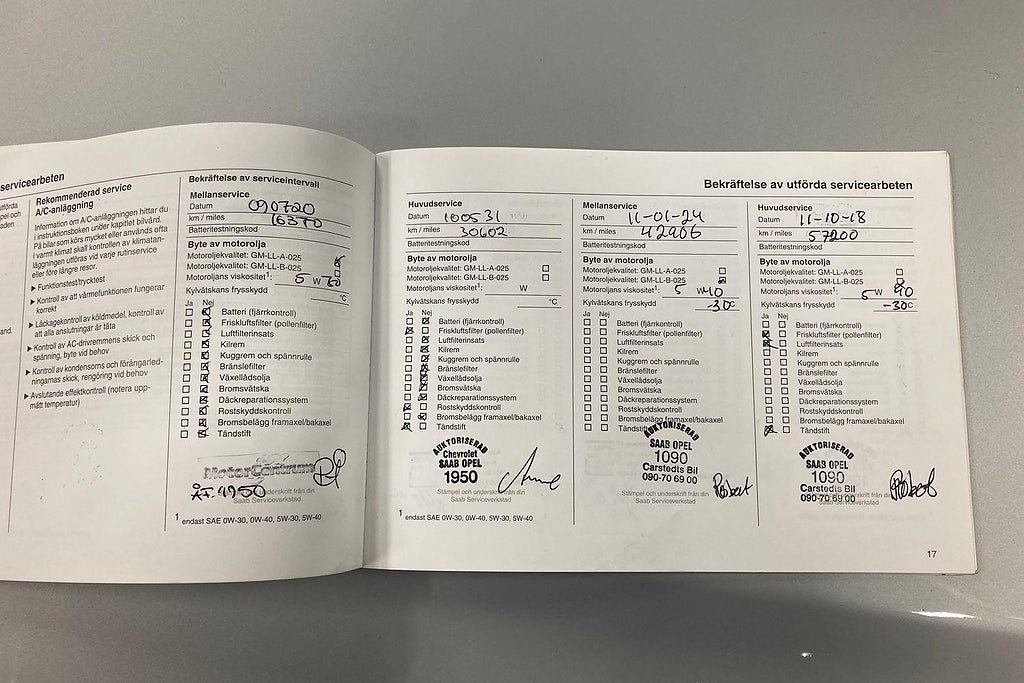 servicearbeten
Rekommenderad service
A/C-anläggning
Information om A/C-anläggningen hittar du
i instruktionsboken under kapitlet bilvård.
På bilar som körs mycket eller används ofta
i varmt klimat skall kontrollen av klimatan-
läggningen utföras vid varje rutinservice
eller före längre resor.
Funktionstest/trycktest
Kontroll av att värmefunktionen fungerar
korrekt
Läckagekontroll av köldmedel, kontroll av
att alla anslutningar är täta
Kontroll av AC-drivremmens skick och
spänning, byte vid behov
Kontroll av kondensorns och förångarled-
ningarnas skick, rengöring vid behov
Avslutande effektkontroll (notera upp-
mätt temperatur)
Bekräftelse av serviceintervall
Mellanservice
Datum 090720
km / miles 16370
Batteritestningskod
Byte av motorolja
Motoroljekvalitet: GM-LL-A-025
Motoroljekvalitet: GM-LL-B-025
Motoroljans viskositet¹: 5 W 30
Kylvätskans frysskydd °C
Ja Nej
Batteri (fjärrkontroll)
Friskluftsfilter (pollenfilter)
Luftfilterinsats
Kilrem
Kuggrem och spännrulle
Bränslefilter
Växellådsolja
Bromsvätska
Däckreparationssystem
Rostskyddskontroll
Bromsbelägg framaxel/bakaxel
Tändstift
MotorCentrum
ÅF. 4950
Saab Serviceverkstad
1 endast SAE 0W-30, 0W-40, 5W-30, 5W-40
Bekräftelse av utförda servicearbeten
Huvudservice
Datum 100531
km / miles 30602
Batteritestningskod
Byte av motorolja
Motoroljekvalitet: GM-LL-A-025
Motoroljekvalitet: GM-LL-B-025
Motoroljans viskositet¹: W
Kylvätskans frysskydd °C
Ja Nej
Batteri (fjärrkontroll)
Friskluftsfilter (pollenfilter)
Luftfilterinsats
Kilrem
Kuggrem och spännrulle
Bränslefilter
Växellådsolja
Bromsvätska
Däckreparationssystem
Rostskyddskontroll
Bromsbelägg framaxel/bakaxel
Tändstift
AUKTORISERAD
Chevrolet
SAAB OPEL
1950
Stämpel och underskrift från din
Saab Serviceverkstad
1 endast SAE 0W-30, 0W-40, 5W-30, 5W-40
Mellanservice
Datum 11-01-24
km / miles 42906
Batteritestningskod
Byte av motorolja
Motoroljekvalitet: GM-LL-A-025
Motoroljekvalitet: GM-LL-B-025
Motoroljans viskositet¹: 5 W40
Kylvätskans frysskydd -30°C
Ja Nej
Batteri (fjärrkontroll)
Friskluftsfilter (pollenfilter)
Luftfilterinsats
Kilrem
Kuggrem och spännrulle
Bränslefilter
Växellådsolja
Bromsvätska
Däckreparationssystem
Rostskyddskontroll
Bromsbelägg framaxel/bakaxel
Tändstift
AUKTORISERAD
SAAB OPEL
1090
Carstedts Bil
090-70 69 00
Robert
Stämpel och underskrift från din
Saab Serviceverkstad
Huvudservice
Datum 11-10-18
km / miles 57200
Batteritestningskod
Byte av motorolja
Motoroljekvalitet: GM-LL-A-025
Motoroljekvalitet: GM-LL-B-025
Motoroljans viskositet¹: 5W 40
Kylvätskans frysskydd -30°C
Ja Nej
Batteri (fjärrkontroll)
Friskluftsfilter (pollenfilter)
Luftfilterinsats
Kilrem
Kuggrem och spännrulle
Bränslefilter
Växellådsolja
Bromsvätska
Däckreparationssystem
Rostskyddskontroll
Bromsbelägg framaxel/bakaxel
Tändstift
AUKTORISERAD
SAAB OPEL
1090
Carstedts Bil
090-70 69 00
Robert
Saab Serviceverkstad
17